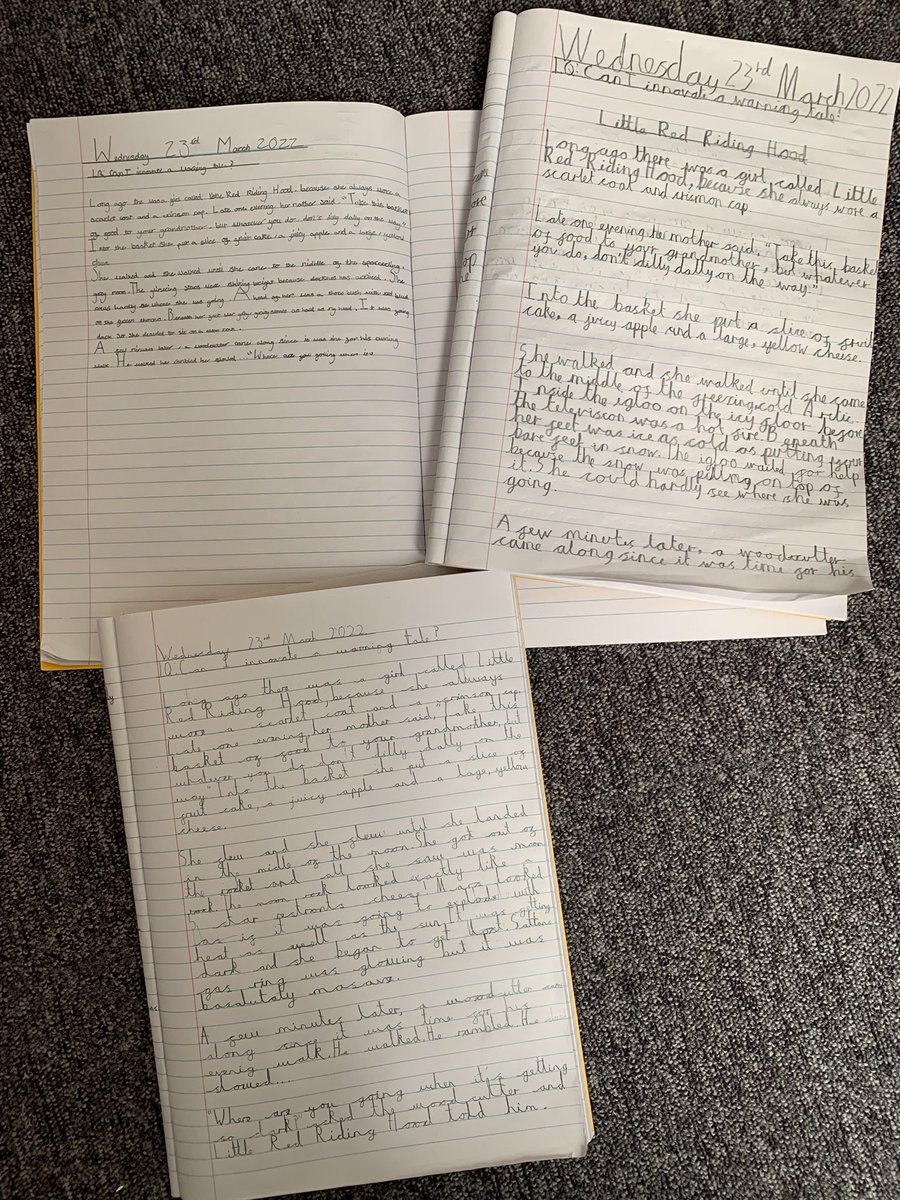 Wednesday 23rd March 2022
LQ: Can I innovate a warning tale?
Long ago the was a girl called little Red Riding Hood, because she always wore a
scarlet coat and a crimson cap. Late one evening, her mother said, "Take this basket
of food to your grandmother, but whatever you do, don't dilly dally on the way."
Into the basket she put a slice of fruit cake, a juicy apple and a large, yellow
She walked and she walked until she came to the middle of the
grey moon. The glowing stars were shining bright because darkness has arrived. She
could hardly see where she was going. A head of her was a thorn bush with red blood
on the green thorns. Beneath her feet was
dark so she decided to sit on a moon rock.
A few minutes later, a woodcutter came along since it was time for his evening
walk. He walked he
Wednesday 23rd March 2022
LQ: Can I innovate a warning tale?
Little Red Riding Hood
Long ago there was a girl called Little
Red Riding Hood, because she always wore a
scarlet coat and crismon cap
Late one evening her mother said, "Take this basket
of food to your grandmother, but whatever
you do, don't dilly dally on the way."
Into the basket she put a slice of
cake, a juicy apple and a large, yellow cheese.
She walked and she walked until she came
to the middle of the freezing, cold Artic.
Inside the igloo on the icy floor before
the televiscon was a hot fire. Beneath
her feet was ice as cold as putting your
bare feet in snow. The igloo wailed for help
because the snow was pilling on top of
it. She could hardly see where she was
going.
A few minutes later, a woodcutter
came along since it was time for his
Wednesday 23rd March 2022
LQ: Can I innovate a warning tale?
Long ago there was a girl called Little
Red Riding Hood, because she always
wore a scarlet coat and a crimson cap.
Late one evening, her mother said, "Take this
basket of food to your grandmother, but
whatever you do don't dilly dally on the
way" Into the basket she put a slice of
fruit cake, a juicy apple and a large, yellow
cheese.
She flew and she flew until she landed
in the midle of the moon. She got out of
the rocket and all she saw was moon
rock. The moon rock looked exactly like a
5 star restronts cheese! Mars looked
as if it was going to explode with
heat as well as the sun. It was getting
dark and she began to get upset. Sattons
gas ring was glowing but it was
basalutaly masave.
A few minutes later, a woodcutter came
along since it was time for his
evenig walk. He walked. He rambled. He
slowed...
"Where are you going when it's getting
so dark?" asked the woodcutter and
Little Red Riding Hood told him.